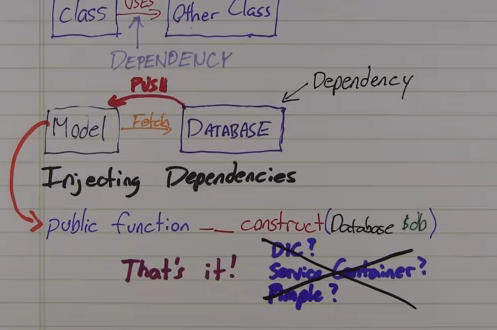 Class USES Other Class
DEPENDENCY
PUSH
Dependency
Model Fetch DATABASE
Injecting Dependencies
public function __construct(Database $db)
That's it!
DIC?
Service Container?
Pimple?